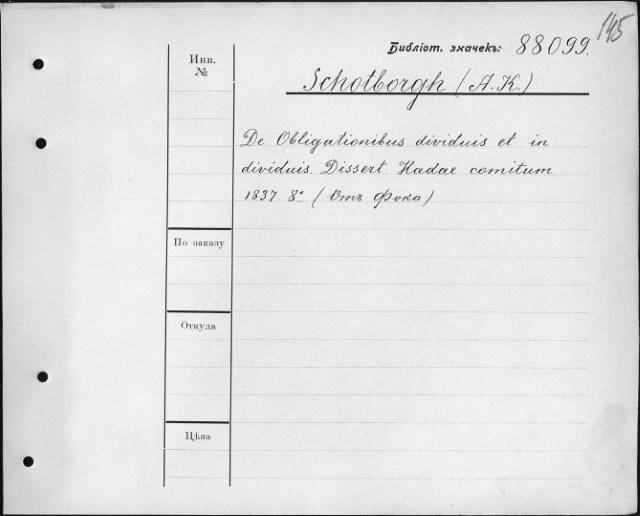 145
Библіот. значекъ: 88099.
Инв.
№
Schotborgh (A. K.)
De Obligationibus dividuis et in
dividuis. Dissert. Hadae comitum
1837. 8° (Отъ Фока)
По заказу
Откуда
Цѣна